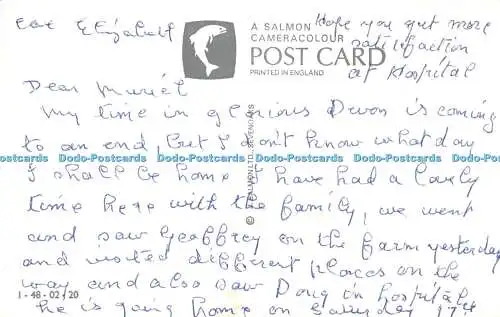 Hope you get more
satisfaction
at Hospital
A SALMON
CAMERACOLOUR
POST CARD
PRINTED IN ENGLAND
Dear Muriel
My time in glorious Devon is coming
to an end, but I don't know what day
Dodo-Postcards Dodo-Postcards Dodo-Postcards Dodo-Postcards Dodo-Postcards Dodo-Postcards
I shall be home. I have had a lovely
time here with the family, we went
and saw Geoffrey on the farm yesterday
and visited different places on the
way and also saw Doug in hospital
he is going home on Saturday 17th
1-48-02-20